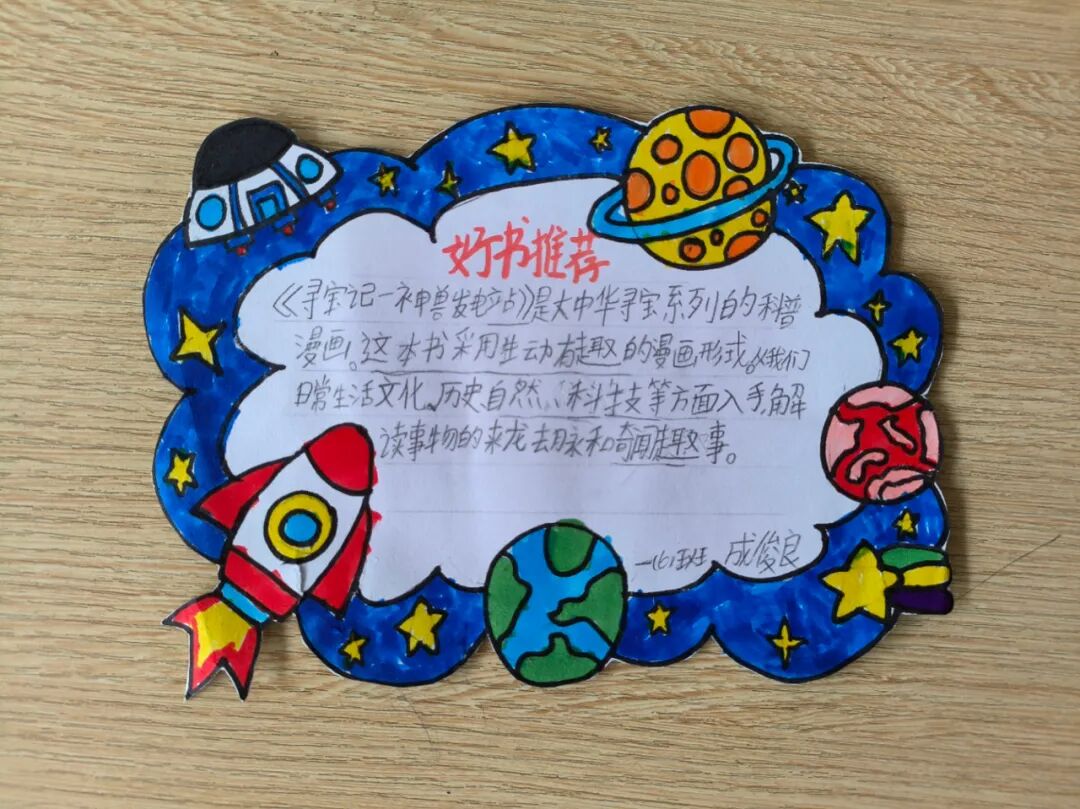 好书推荐
《寻宝记-神兽发电站》是大中华寻宝系列的科普
漫画。这本书采用生动有趣的漫画形式。从我们
日常生活文化、历史自然、科技等方面入手,解
读事物的来龙去脉和奇闻趣事。
一(6)班 成俊良